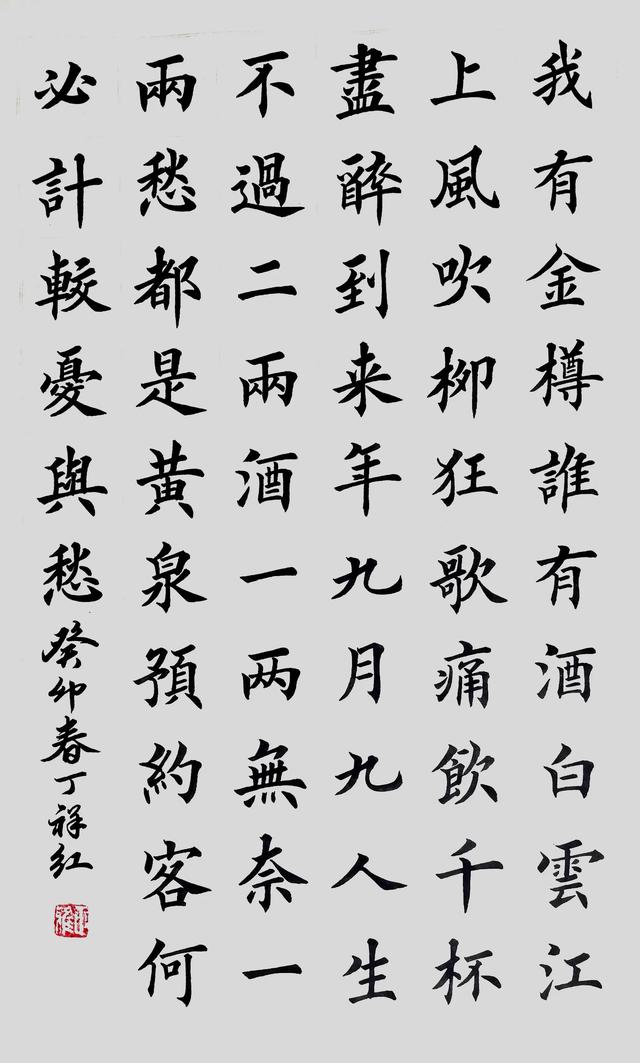 我有金樽誰有酒白雲江
上風吹柳狂歌痛飲千杯
盡醉到来年九月九人生
不過二兩酒一两無奈一
兩愁都是黃泉預約客何
必計較憂與愁癸卯春丁祥红